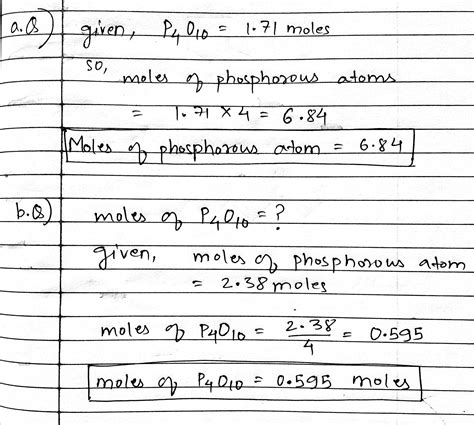 a.Q) given, P4O10 = 1.71 moles
so,
moles of phosphorous atoms
= 1.71 × 4 = 6.84
Moles of phosphorous atom = 6.84
b.Q) moles of P4O10 = ?
given, moles of phosphorous atom
= 2.38 moles
moles of P4O10 = 2.38/4 = 0.595
moles of P4O10 = 0.595 moles